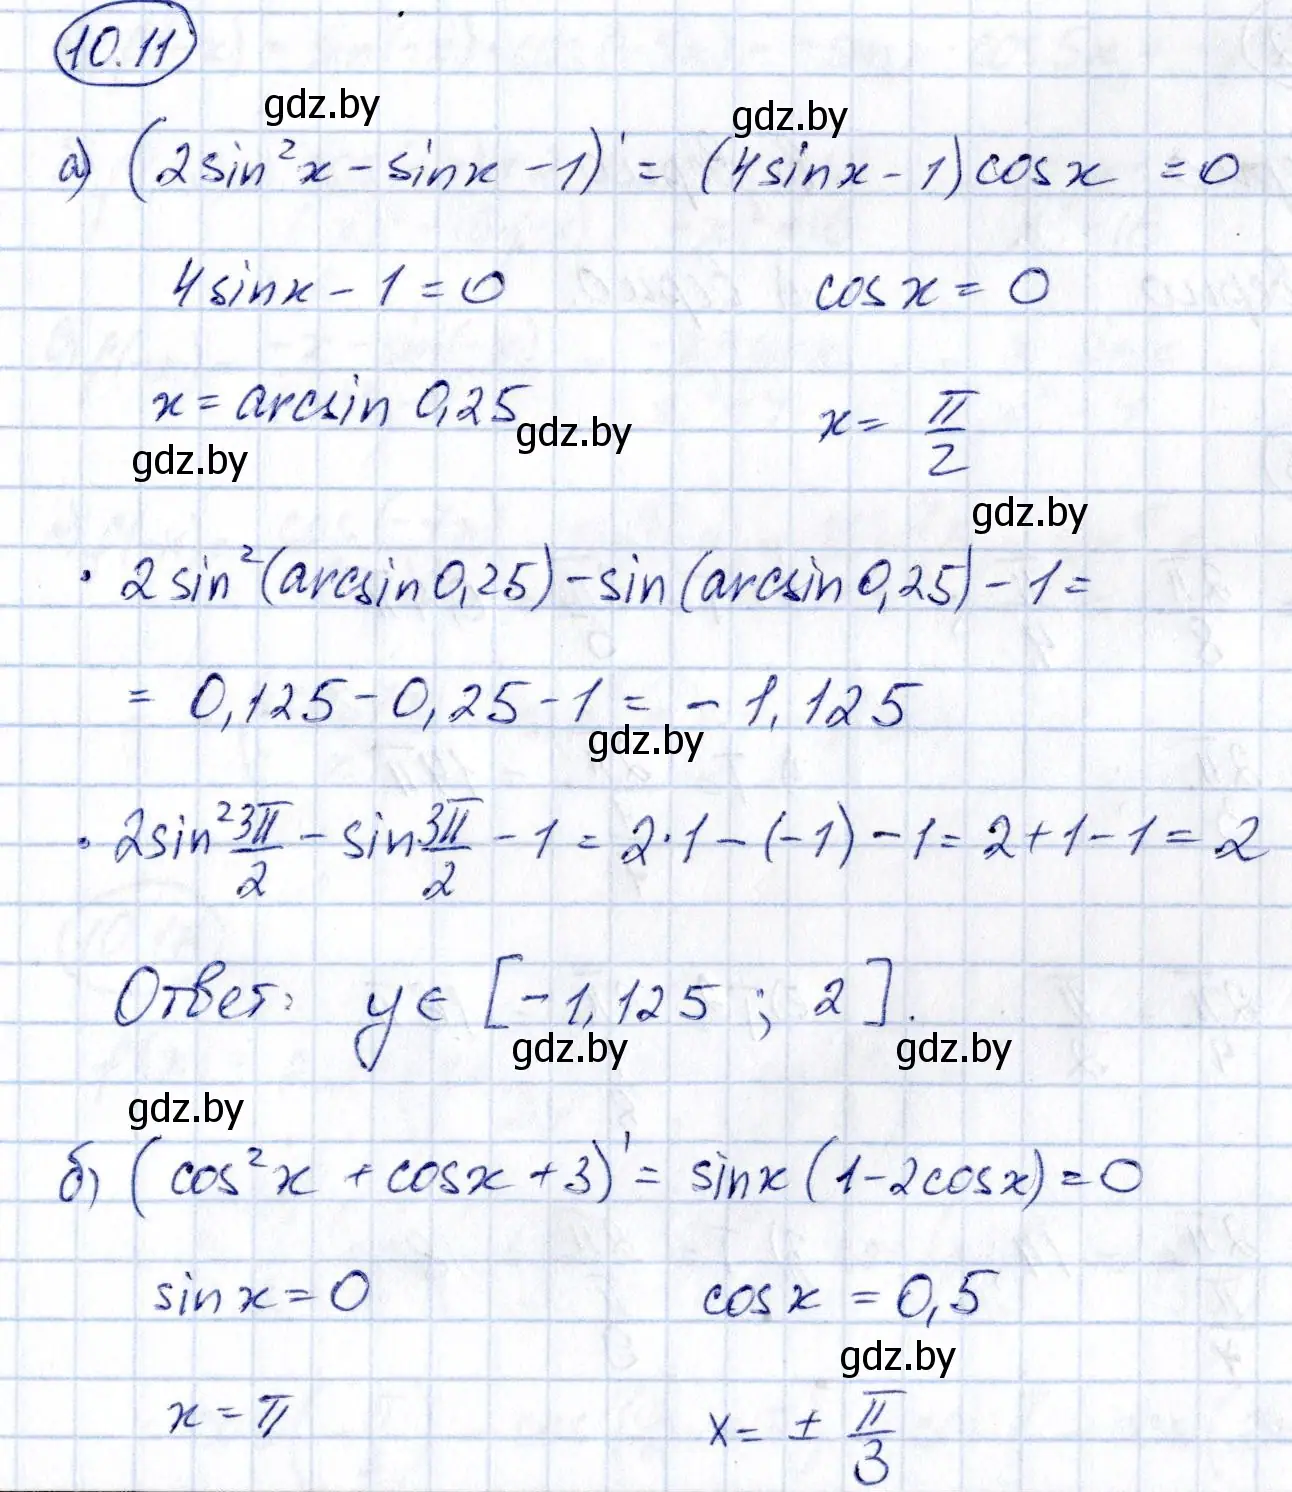 10.11
gdz.by gdz.by
а) (2sin²x - sinx - 1)' = (4sinx - 1)cosx = 0
4sinx - 1 = 0 cosx = 0
x = arcsin 0,25 x = π/2
gdz.by gdz.by gdz.by
• 2sin²(arcsin0,25) - sin(arcsin0,25) - 1 =
= 0,125 - 0,25 - 1 = - 1,125
gdz.by
• 2sin² 3π/2 - sin 3π/2 - 1 = 2·1 - (-1) - 1 = 2 + 1 - 1 = 2
Ответ: y ∈ [-1,125 ; 2].
gdz.by gdz.by
gdz.by
б) (cos²x + cosx + 3)' = sinx(1 - 2cosx) = 0
sinx = 0 cosx = 0,5
gdz.by
x = π x = ± π/3